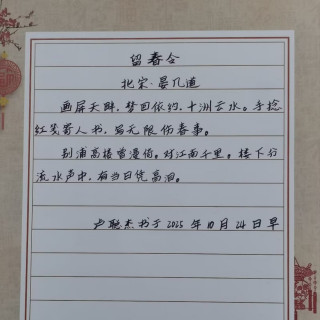 留春令
北宋·晏几道
画屏天畔,梦回依约,十洲云水。手捻
红笺寄人书,写无限伤春事。
别浦高楼曾漫倚。对江南千里。楼下分
流水声中,有当日凭高泪。
卢聪杰书于2025年10月24日早